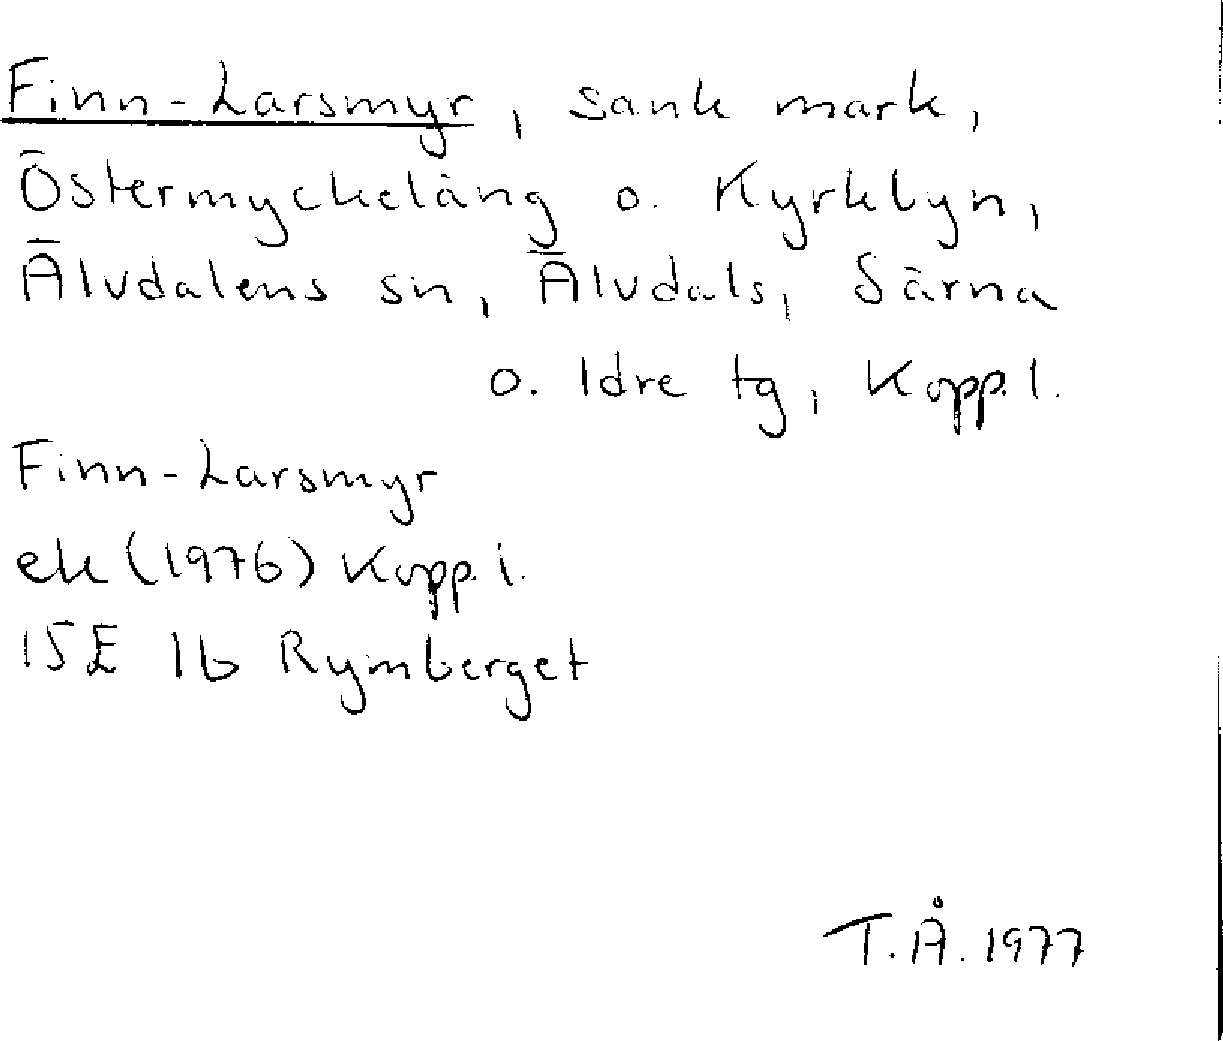 Finn-Larsmyr, sank mark,
Östermyckeläng o. Kyrkbyn,
Älvdalens sn, Älvdals, Särna
o. Idre tg, Kopp. l.
Finn-Larsmyr
ek (1976) Kopp. l.
15E 1b Rymberget
T.Å. 1977